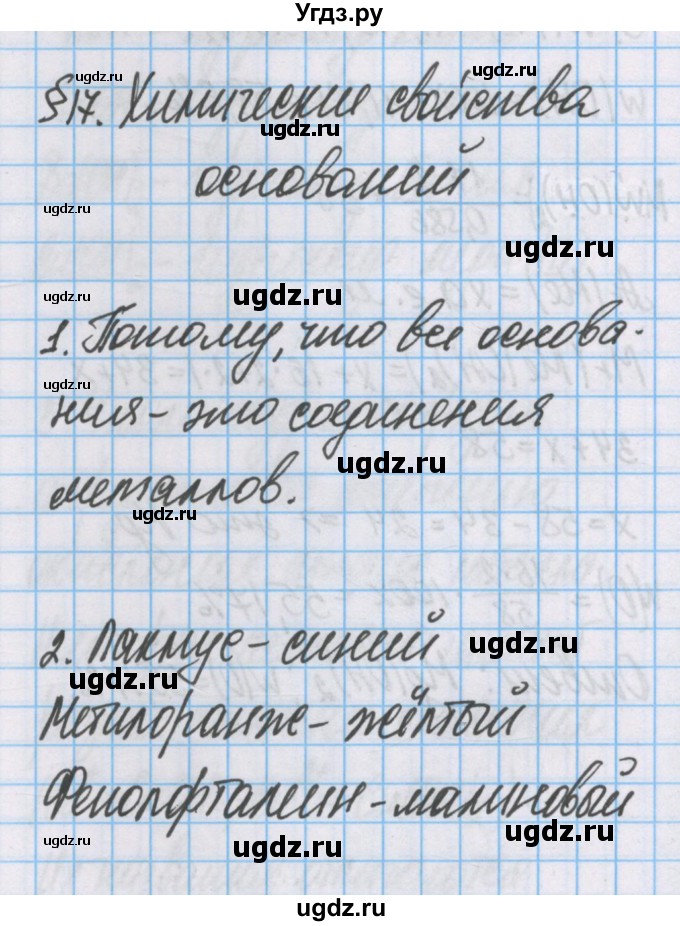 Угдз.ру
ugdz.ru
§17. Химические свойства
ugdz.ru
оснований
ugdz.ru
ugdz.ru
ugdz.ru
ugdz.ru
1. Потому, что все основа-
ugdz.ru
ния - это соединения
ugdz.ru
металлов.
ugdz.ru
2. Лакмус - синий
ugdz.ru
ugdz.ru
Метилоранж - жёлтый
Фенолфталеин - малиновый
ugdz.ru
ugdz.ru
ugdz.ru
ugdz.ru